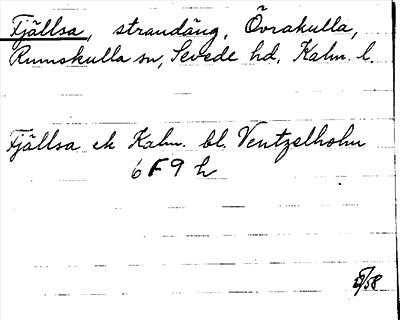 Fjällsa, strandäng, Övrakulla,
Rumskulla sn, Sevede hd, Kalm. l.
Fjällsa ek Kalm. bl. Ventzelholm
6 F 9 h